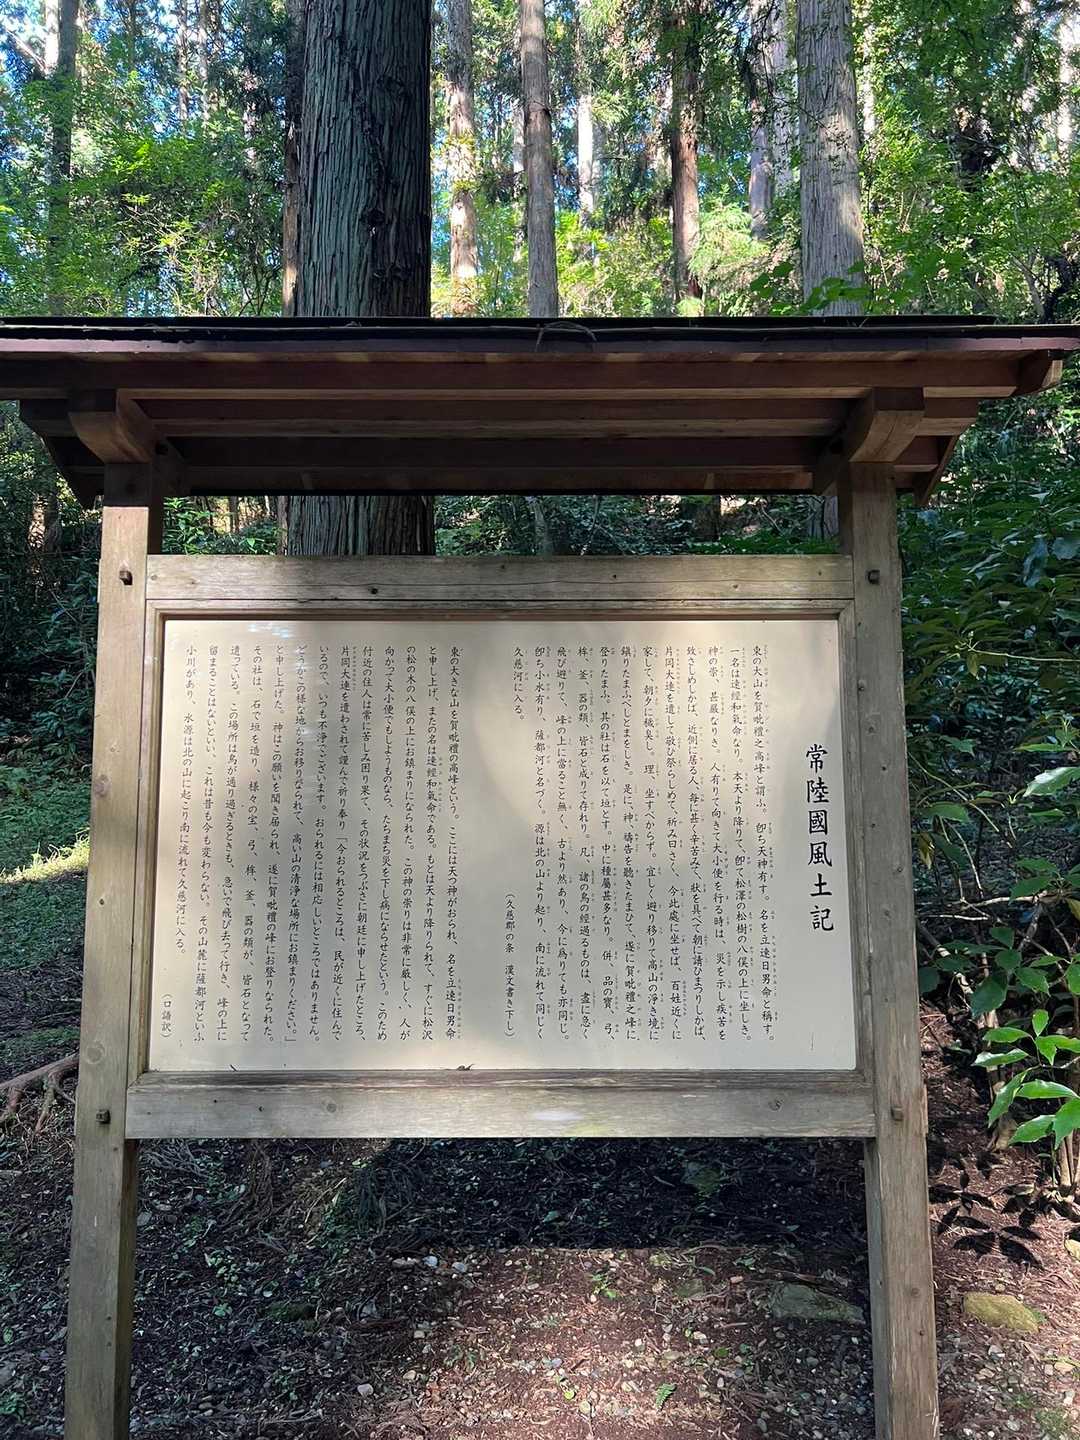 常陸國風土記
東の大山を賀毗禮之高峰と謂ふ。卽ち天神有す。名を立速日男命と稱す。
一名は速經和氣命なり。本天より降りて、卽て松澤の松樹の八俣の上に坐しき。
神の祟、甚嚴なりき。人有りて向きて大小便を行る時は、災を示し疾苦を
致さしめしかば、近側に居る人、每に甚く辛苦みて、狀を具べて朝に請ひまつりしかば、
片岡大連を遣して敬ひ祭らしめて、祈み曰さく、今此處に坐せば、百姓近くに
家して、朝夕に穢臭し。理、坐すべからず。宜しく避り移りて高山の淨き境に
鎭りたまふべしとまをしき。是に、神、禱告を聽きたまひて、遂に賀毗禮之峰に
登りたまふ。其の社は石を以て垣とす。中に種屬甚多なり。併、品の寶、弓、
桙、釜、器の類、皆石と成りて存れり。凡、諸の鳥の經過るものは、盡に急く
飛び避りて、峰の上に當ること無く、古より然あり、今に爲りても亦同じ。
卽ち小水有り、薩都河と名づく。源は北の山より起り、南に流れて同じく
久慈河に入る。
（久慈郡の条　漢文書き下し）
東の大きな山を賀毗禮の高峰という。ここには天つ神がおられ、名を立速日男命
と申し上げ、またの名は速經和氣命である。もとは天より降りられて、すぐに松沢
の松の木の八俣の上にお鎮まりになられた。この神の祟りは非常に厳しく、人が
向かって大小便でもしようものなら、たちまち災を下し病にならせたという。このため
付近の住人は常に苦しみ困り果て、その状況をつぶさに朝廷に申し上げたところ、
片岡大連を遣わされて謹んで祈り奉り「今おられるところは、民が近くに住んで
いるので、いつも不浄でございます。おられるには相応しいところではありません。
どうかこの様な地からお移りなられて、高い山の清浄な場所にお鎮まりください。」
と申し上げた。神はこの願いを聞き居られ、遂に賀毗禮の峰にお登りなられた。
その社は、石で垣を造り、様々の宝、弓、桙、釜、器の類が、皆石となって
遺っている。この場所は鳥が通り過ぎるときも、急いで飛び去って行き、峰の上に
留まることはないといい、これは昔も今も変わらない。その山麓に薩都河といふ
小川があり、水源は北の山に起こり南に流れて久慈河に入る。
（口語訳）